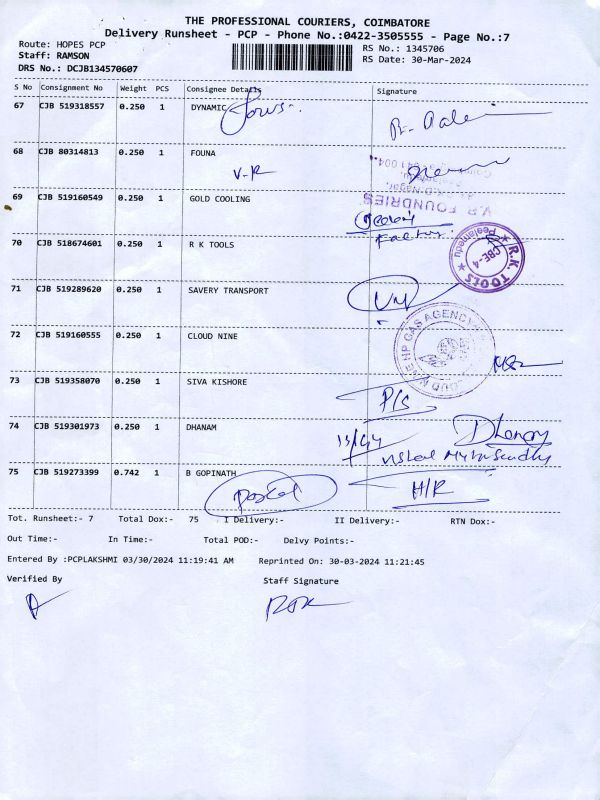 THE PROFESSIONAL COURIERS, COIMBATORE
Delivery Runsheet - PCP - Phone No.:0422-3505555 - Page No.:7
Route: HOPES PCP
RS No.: 1345706
Staff: RAMSON
RS Date: 30-Mar-2024
DRS No.: DCJB134570607
S No Consignment No Weight PCS Consignee Details Signature
67 CJB 519318557 0.250 1 DYNAMIC
68 CJB 80314813 0.250 1 FOUNA
V-R
69 CJB 519160549 0.250 1 GOLD COOLING
V.R FOUNDRIES
70 CJB 518674601 0.250 1 R K TOOLS
R.K. TOOLS
CBE-4
Peelamedu
71 CJB 519289620 0.250 1 SAVERY TRANSPORT
72 CJB 519160555 0.250 1 CLOUD NINE
CLOUD NINE HP GAS AGENCY
73 CJB 519358070 0.250 1 SIVA KISHORE
P/S
74 CJB 519301973 0.250 1 DHANAM
75 CJB 519273399 0.742 1 B GOPINATH
Postal
H/R
Tot. Runsheet:- 7 Total Dox:- 75 I Delivery:- II Delivery:- RTN Dox:-
Out Time:- In Time:- Total POD:- Delvy Points:-
Entered By :PCPLAKSHMI 03/30/2024 11:19:41 AM Reprinted On: 30-03-2024 11:21:45
Verified By Staff Signature